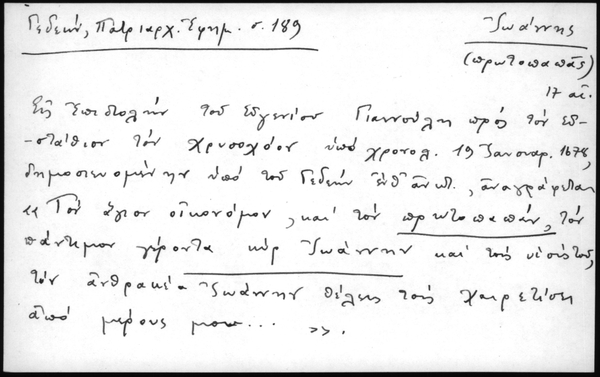 Γεδεών, Πατριαρχ. Ἐφημ. σ. 189
Ἰωάννης
(πρωτοπαπᾶς)
17 αἰ.
Εἰς ἐπιστολὴν τοῦ Εὐγενίου Γιαννούλη πρὸς τὸν Εὐ-
-στάθιον τὸν χρυσοχόον ὑπὸ χρονολ. 19 Ἰανουαρ. 1678,
δημοσιευομένην ὑπὸ τοῦ Γεδεὼν ἔνθ' ἀνωτ., ἀναγράφεται
"Τὸν ἅγιον οἰκονόμον, καὶ τὸν πρωτοπαπᾶν, τὸν
πάντιμον γέροντα κὺρ Ἰωάννην καὶ τοὺς υἱούς του,
τὸν ἀνθρακέα Ἰωάννην θέλεις τοὺς χαιρετίσῃ
ἀπὸ μέρους μου... ».